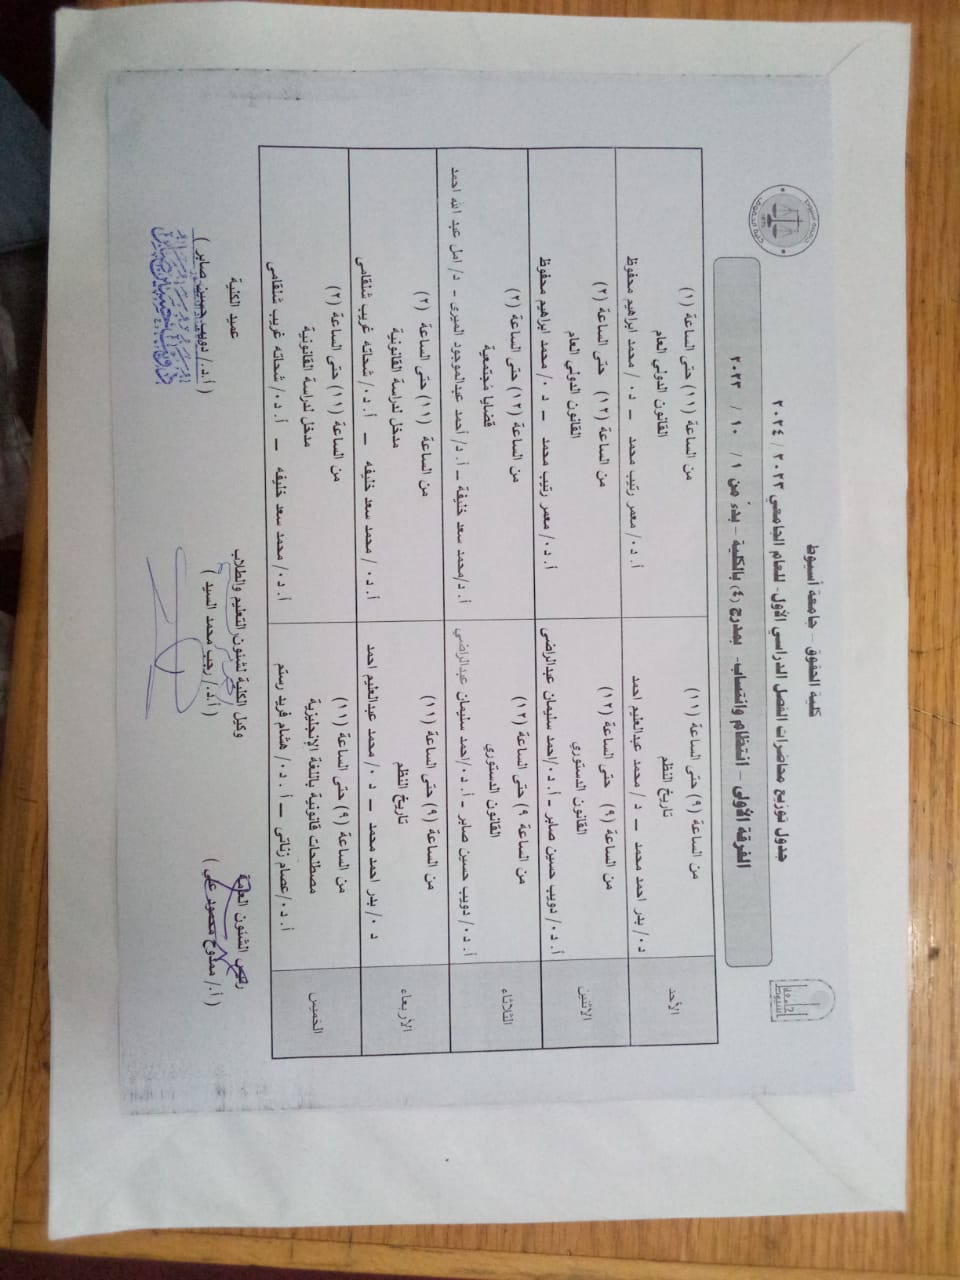 كلية الحقوق - جامعة أسيوط
جدول توزيع محاضرات الفصل الدراسي الأول - للعام الجامعي ٢٠٢٣ / ٢٠٢٤
الفرقة الأولى - انتظام وانتساب - بمدرج (٤) بالكلية - بدءً من ١ / ١٠ / ٢٠٢٣
الأحد
من الساعة (٩) حتى الساعة (١١)
تاريخ النظم
د٠/ بدر احمد محمد – د / محمد عبدالعليم احمد
من الساعة (١١) حتى الساعة (١)
القانون الدولى العام
أ.د٠/ معمر رتيب محمد – د٠/ محمد ابراهيم محفوظ
الاثنين
من الساعة (٩) حتى الساعة (١٢)
القانون الدستوري
أ. د٠/ دويب حسين صابر - أ. د٠/احمد سليمان عبدالراضى
من الساعة (١٢) حتى الساعة (٢)
القانون الدولى العام
أ.د٠/ معمر رتيب محمد – د٠/ محمد ابراهيم محفوظ
الثلاثاء
من الساعة ٩) حتى الساعة (١٢)
القانون الدستوري
أ. د٠/ دويب حسين صابر - أ. د٠/احمد سليمان عبدالراضي
من الساعة (١٢) حتى الساعة (٢)
قضايا مجتمعية
أ. د/محمد سعد خليفة – أ. د/ أحمد عبدالموجود – د/ امل عبد الله احمد
الأربعاء
من الساعة (٩) حتى الساعة (١١)
تاريخ النظم
د ٠/ بدر احمد محمد – د ٠/ محمد عبدالعليم احمد
من الساعة (١١) حتى الساعة (٢)
مدخل لدراسة القانونية
أ. د٠/ محمد سعد خليفه – أ. د٠/ شحاته غريب شلقامى
الخميس
من الساعة (٩) حتى الساعة (١١)
مصطلحات قانونية باللغة الإنجليزية
أ. د٠/عصام زناتى – أ. د٠/ هشام فريد رستم
من الساعة (١١) حتى الساعة (٢)
مدخل لدراسة القانونية
أ. د٠/ محمد سعد خليفه – أ. د٠/ شحاته غريب شلقامى
رئيس الشئون العامة
( أ./ ممدوح محمود على )
وكيل الكلية لشئون التعليم والطلاب
( أ.د./ رجب محمد السيد )
عميد الكلية
( أ.د./ دويب حسين صابر )